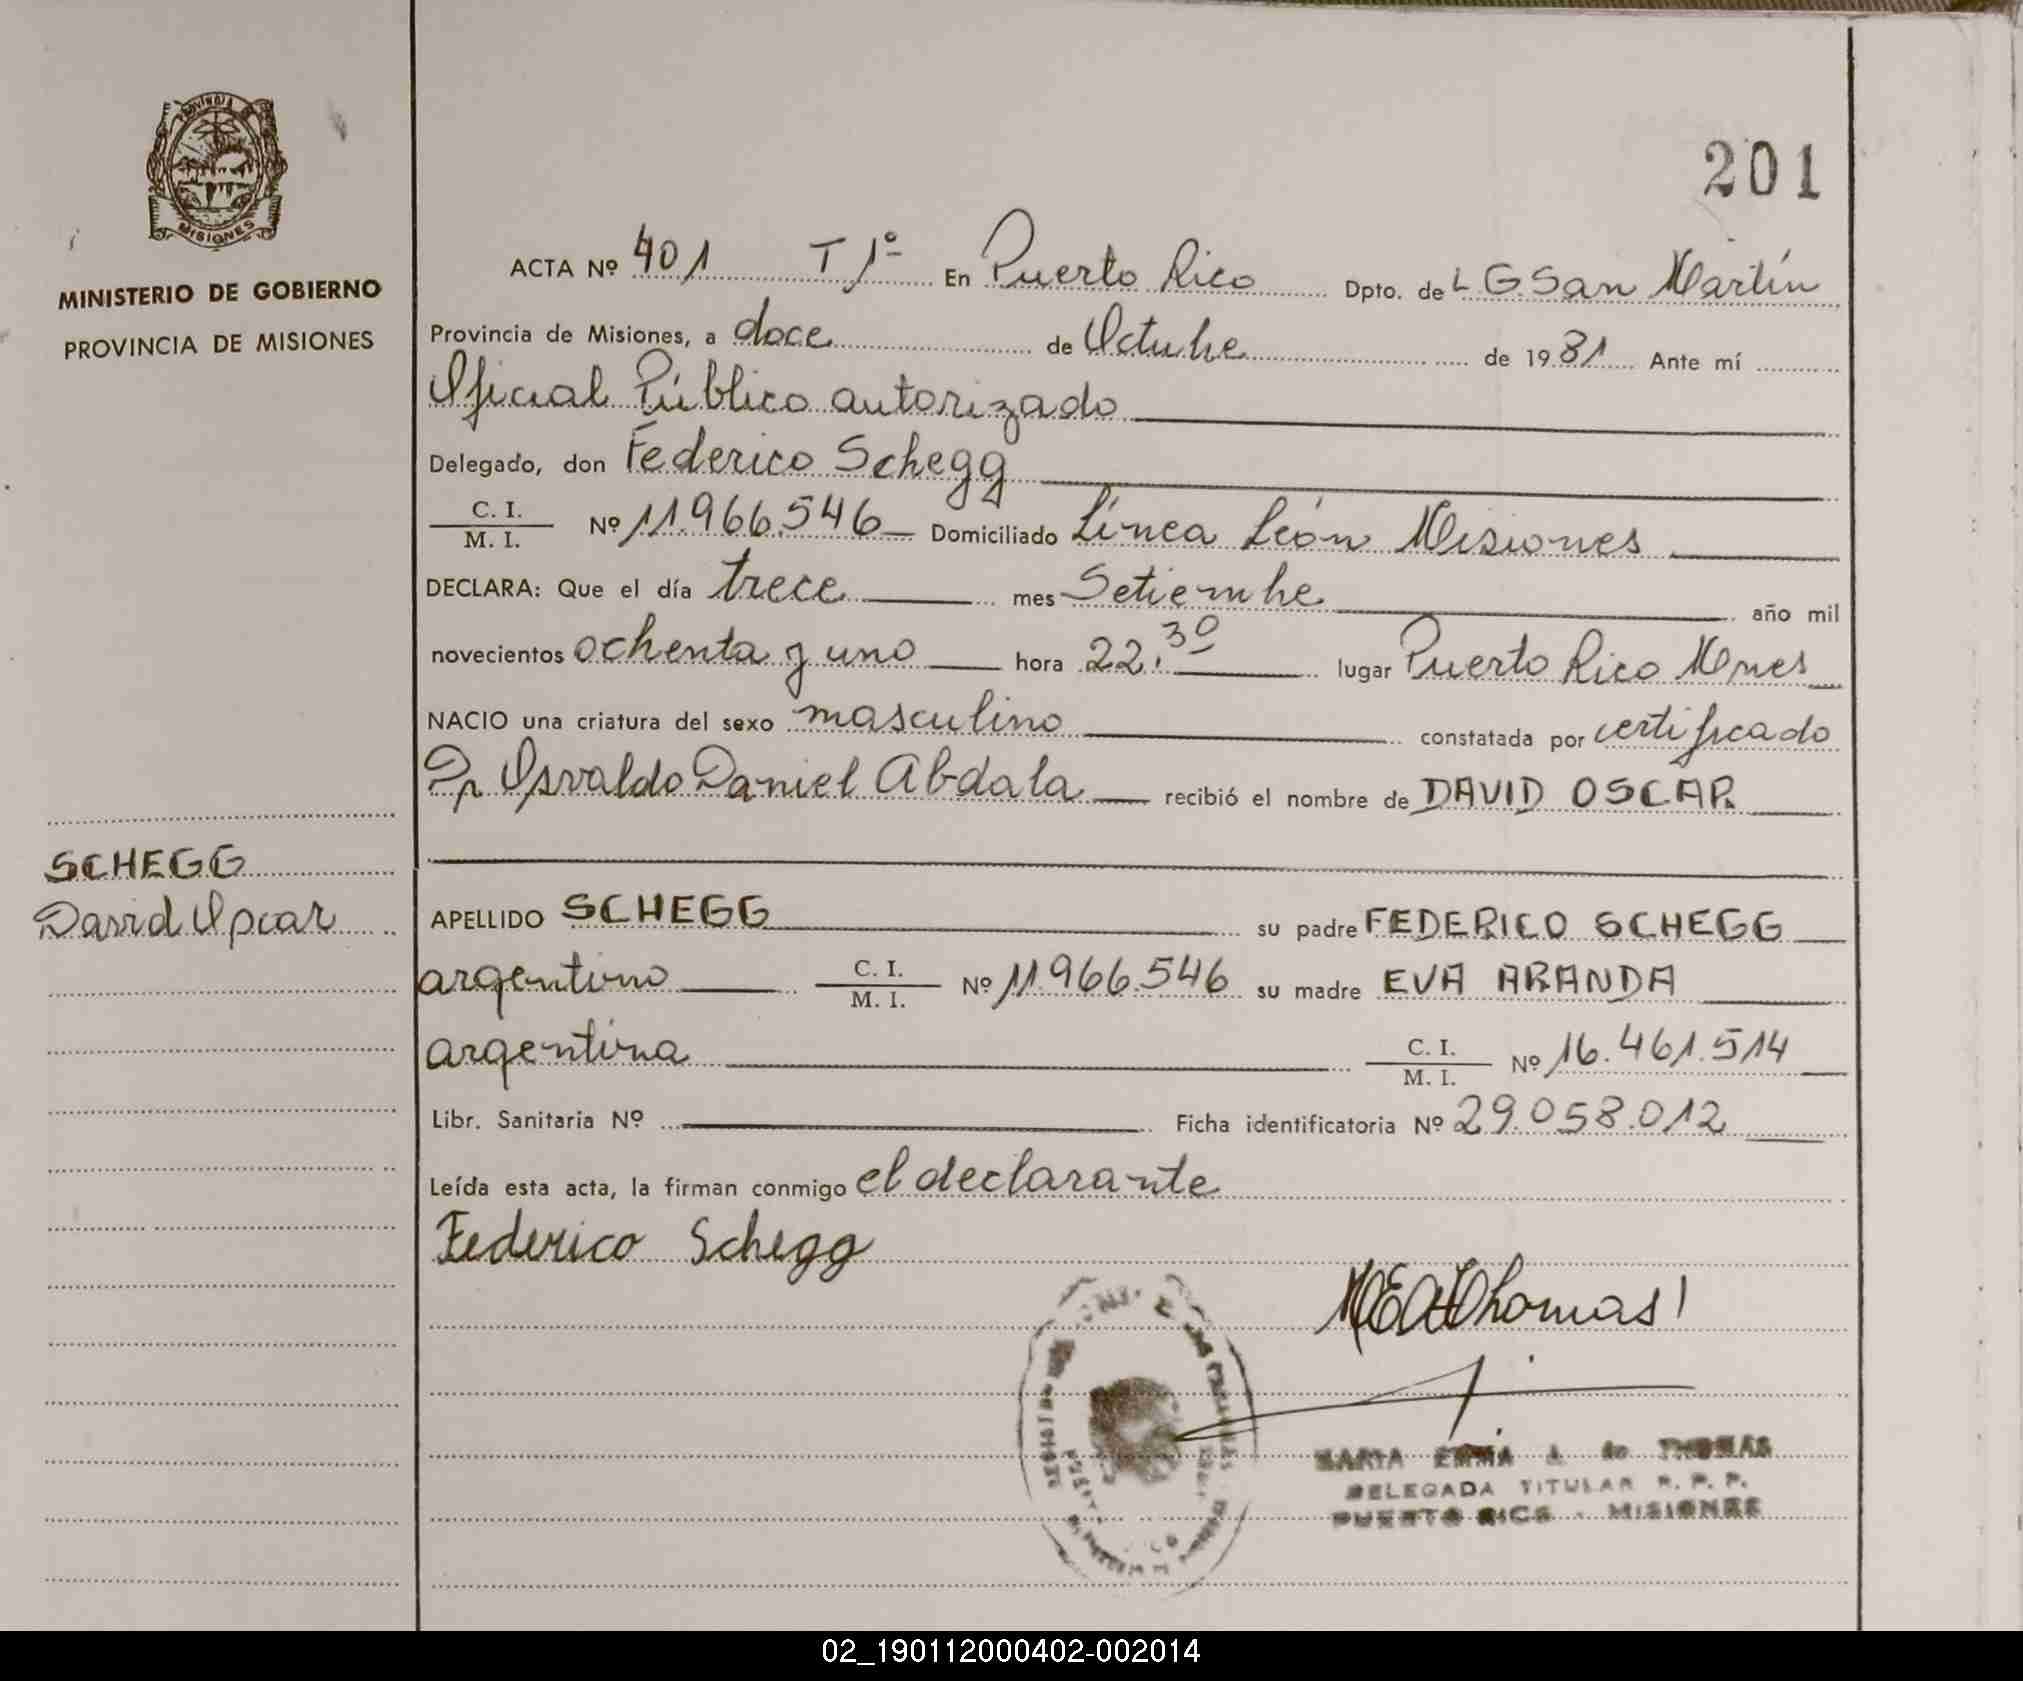 PROVINCIA DE
MISIONES
MINISTERIO DE GOBIERNO
PROVINCIA DE MISIONES
SCHEGG
David Oscar
201
ACTA Nº 401 T 1º En Puerto Rico Dpto. de L G San Martín
Provincia de Misiones, a doce de Octubre de 1981 Ante mí
Oficial Público autorizado
Delegado, don Federico Schegg
C. I.
M. I. Nº 11.966.546 Domiciliado Línea León Misiones
DECLARA: Que el día trece mes Setiembre año mil
novecientos ochenta y uno hora 22.30 lugar Puerto Rico Mnes
NACIO una criatura del sexo masculino constatada por certificado
Dr Osvaldo Daniel Abdala recibió el nombre de DAVID OSCAR
APELLIDO SCHEGG su padre FEDERICO SCHEGG
argentino C. I.
M. I. Nº 11.966.546 su madre EVA ARANDA
argentina C. I.
M. I. Nº 16.461.514
Libr. Sanitaria Nº Ficha identificatoria Nº 29.058.012
Leída esta acta, la firman conmigo el declarante
Federico Schegg
MEA Thomas
MARIA EMMA A. de THOMAS
DELEGADA TITULAR R. P. P.
PUERTO RICO - MISIONES
02_190112000402-002014